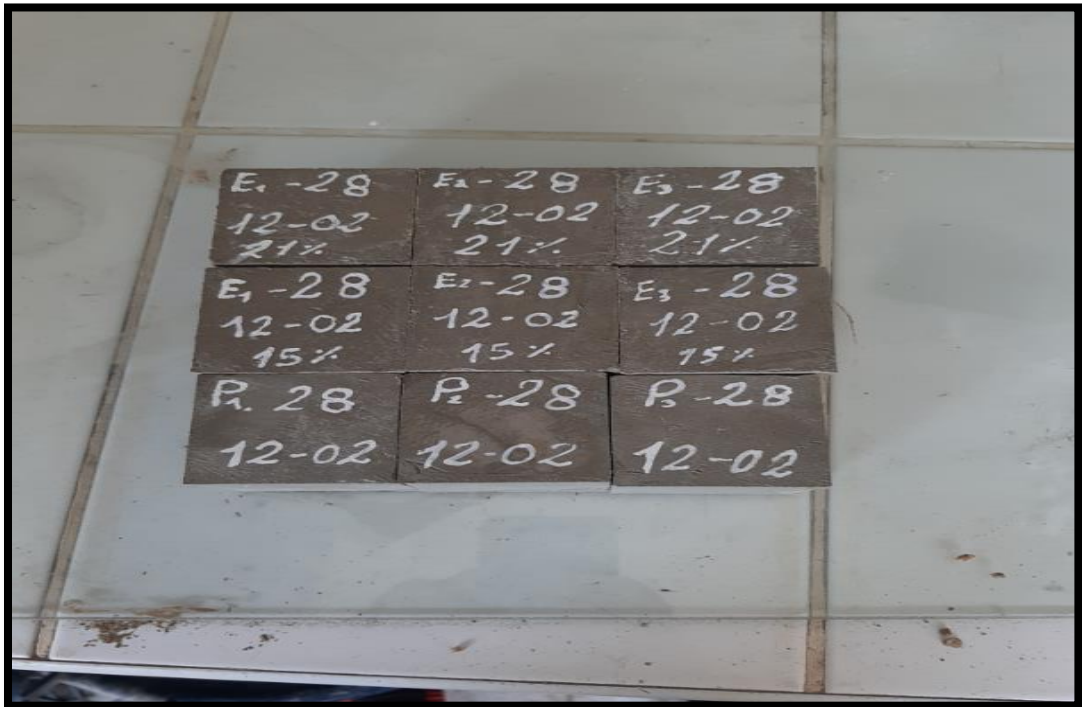 E₁ - 28
12-02
21%
E₂ - 28
12-02
21%
E₃ - 28
12-02
21%
E₁ - 28
12-02
15%
E₂ - 28
12-02
15%
E₃ - 28
12-02
15%
P₁. 28
12-02
P₂ - 28
12-02
P₃ - 28
12-02